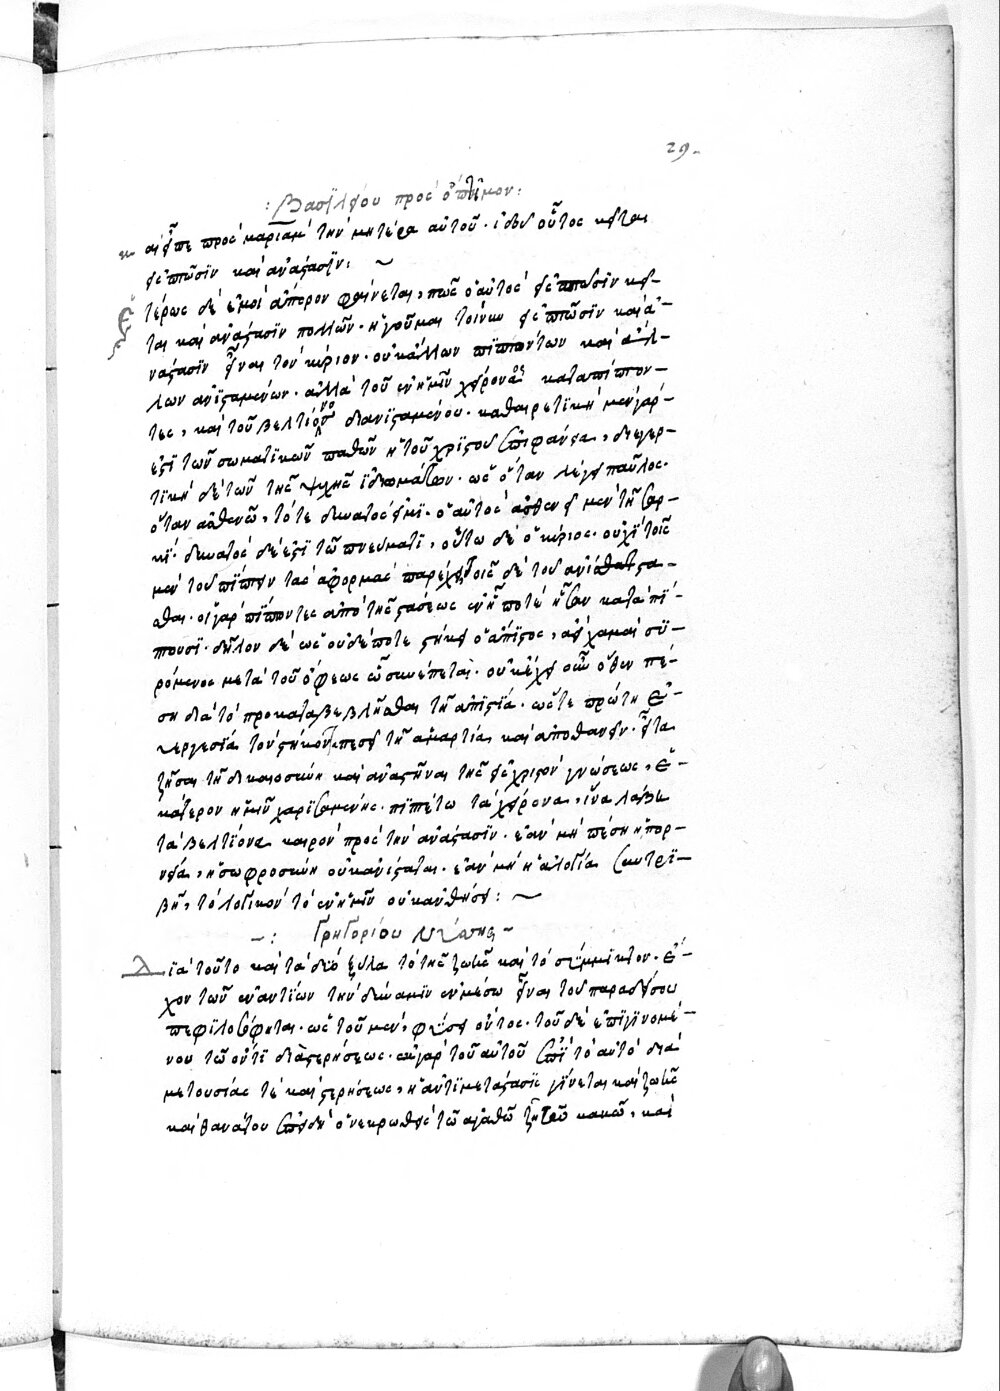 29
: Βασιλείου προς ὀπτῖμον :
αι εἶπε προς μαριαμ την μητέρα αὐτοῦ · ἰδου οὗτος κεῖται
εἰς πτῶσιν και ἀνάστασιν : ~
τέρως δέ ἐμοι ἄπορον φαίνεται, πῶς ὁ αὐτος εἰς πτῶσιν κεῖ-
ται και ἀνάστασιν πολλῶν · ἡγοῦμαι τοίνυν εἰς πτῶσιν και ἀ-
νάστασιν εἶναι τον κύριον · οὐκ ἄλλων πιπτόντων και ἄλ-
λων ἀνισταμένων · ἀλλα τοῦ ἐν ἡμῖν χείρονος καταπίπτον-
τος, και τοῦ βελτίονος διανισταμένου · καθαιρετικη μεν γάρ
ἐστι τῶν σωματικῶν παθῶν ἡ τοῦ χριστου ἐπιφάνεια, διεγερ-
τικη δέ τῶν τῆς ψυχῆς ἰδιωμάτων · ὡς ὅταν λέγει παῦλος ·
ὅταν ἀσθενῶ, τότε δυνατός εἰμι · ὁ αὐτος ἀσθενεῖ μεν τῇ σαρ-
κί · δυνατος δέ ἐστι τῶ πνευματι, οὕτω δέ ὁ κύριος · οὐχι τοῖς
μεν του πίπτειν τας ἀφορμας παρέχει, τοῖς δέ του ἀνίστασ-
θαι · οἱ γαρ πίπτοντες ἀπο τῆς στάσεως ἐν ᾗ ποτέ ἦσαν καταπί-
πτουσι · δῆλον δέ ὡς οὐδέποτε στήκει ὁ ἄπιστος, ἀει χαμαι συ-
ρόμενος μετα τοῦ ὄφεως ὧ συνέπεται · οὐκ ἔχει οὖν ὅθεν πέ-
ση δια το προκαταβεβλῆσθαι τῆ ἀπιστία · ὥστε πρώτη εὐ-
εργεσία τον στήκοντα πεσεῖν τῆ ἁμαρτία και ἀποθανεῖν · εἶτα
ζῆσαι τῆ δικαιοσύνη και ἀναστῆναι τῆς εἰς χριστον γνώσεως, ἑ-
κάτερον ἡμῖν χαριζομένης · πιπτέτω τα χείρονα, ἵνα λάβη
τα βελτίονα καιρον προς την ἀνάστασιν · ἐαν μη πέση ἡ πορ-
νεία, ἡ σωφροσύνη οὐκ ἀνίσταται · ἐαν μη ἡ ἀλογία συντρι-
βῆ, το λογικον το ἐν ἡμῖν οὐκ ἀνθήσει : ~
– : Γρηγορίου νύσσης –
Δια τοῦτο και τα δύο ξύλα το τῆς ζωῆς και το σύμμικτον · ἔ-
χον τῶν ἐναντίων την δύναμιν ἐν μέσω εἶναι του παραδείσου
πεφιλοσόφηται · ὡς τοῦ μεν, φύσει ὄντος · τοῦ δέ ἐπιγινομέ-
νου τῶ ὄντι δια στερήσεως · ἐν γαρ τοῦ αὐτοῦ ἐπι το αὐτο δια
μετουσίας τε και στερήσεως, ἡ ἀντιμετάστασις γίνεται και ζωῆς
και θανάτου ἐπειδη ὁ νεκρωθεις τῶ ἀγαθῶ ζῆ τῶ κακῶ, και